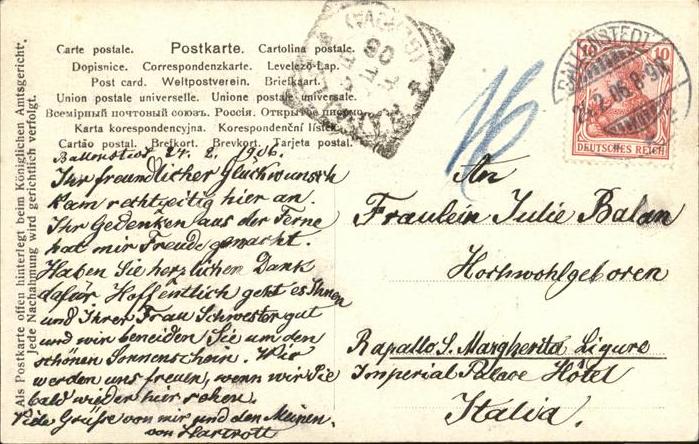 Als Postkarte offen hinterlegt beim Königlichen Amtsgericht.
Jede Nachahmung wird gerichtlich verfolgt.
Carte postale. Postkarte. Cartolina postale.
Dopisnice. Correspondenzkarte. Levelező-Lap.
Post card. Weltpostverein. Briefkaart.
Union postale universelle. Unione postale universale.
Всемірный почтовый союзъ. Россія. Открытое письмо.
Karta korespondencyjna. Korespondenční lístek.
Cartão postal. Brefkort. Brevkort. Tarjeta postal.
Ballenstedt 24. 2. 1906.
Ihr freundlicher Glückwunsch
kam rechtzeitig hier an.
Ihr Gedenken aus der Ferne
hat mir Freude gemacht.
Haben Sie herzlichen Dank
dafür. Hoffentlich geht es Ihnen
und Ihrer Frau Schwester gut
und wir beneiden Sie um den
schönen Sonnenschein. Wir
werden uns freuen, wenn wir Sie
bald wieder hier sehen.
Viele Grüße von mir und den Meinen.
von Hartrott
10 10
DEUTSCHES REICH
BALLENSTEDT
24.2.06.8-9
An
Fräulein Julie Balan
Hochwohlgeboren
Rapallo S. Margherita Ligure
Imperial Palace Hôtel
Italia.